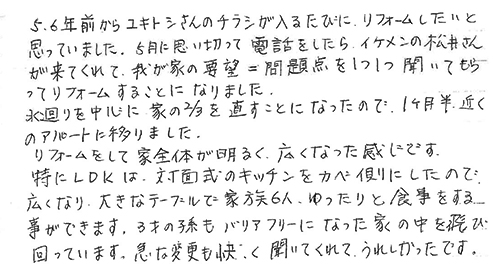 5.6年前からユキトシさんのチラシが入るたびに、リフォームしたいと
思っていました。5月に思い切って電話をしたら、イケメンの松井さん
が来てくれて、我が家の要望=問題点を1つ1つ聞いてもら
ってリフォームすることになりました。
水回りを中心に家の2/3を直すことになったので、1ヶ月半、近く
のアパートに移りました。
リフォームをして家全体が明るく、広くなった感じです。
特にLDKは、対面式のキッチンをカベ側にしたので、
広くなり、大きなテーブルで家族6人、ゆったりと食事をする
事ができます。3才の孫もバリアフリーになった家の中を飛び
回っています。急な変更も快く聞いてくれて、うれしかったです。